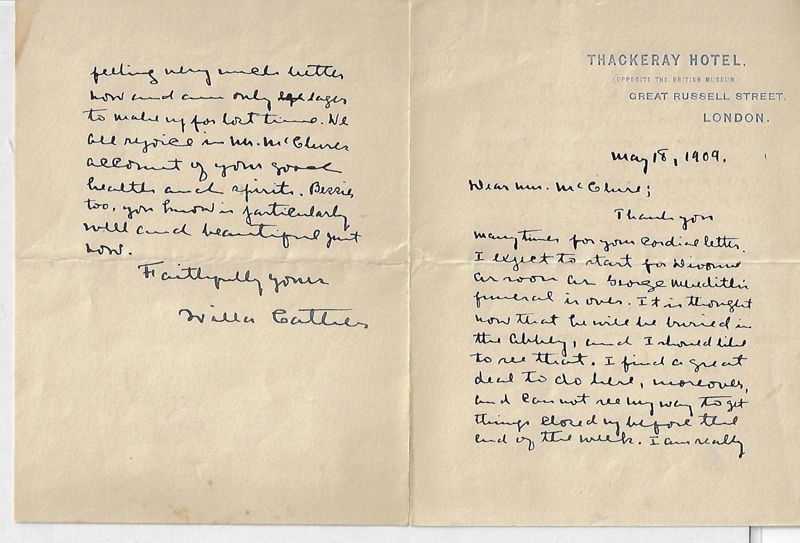 THACKERAY HOTEL,
(OPPOSITE THE BRITISH MUSEUM)
GREAT RUSSELL STREET,
LONDON.
May 18, 1909.
Dear Mrs. McClure;
Thank you
many times for your cordial letter.
I expect to start for Divonne
as soon as George Meredith's
funeral is over. It is thought
now that he will be buried in
the Abbey, and I should like
to see that. I find a great
deal to do here, moreover,
and cannot see my way to get
things closed up before the
end of the week. I am really
feeling very much better
now and am only eager
to make up for lost time. We
all rejoice in Mr. McClure's
account of your good
health and spirits. Bessie
too, you know is particularly
well and beautiful just
now.
Faithfully yours
Willa Cather